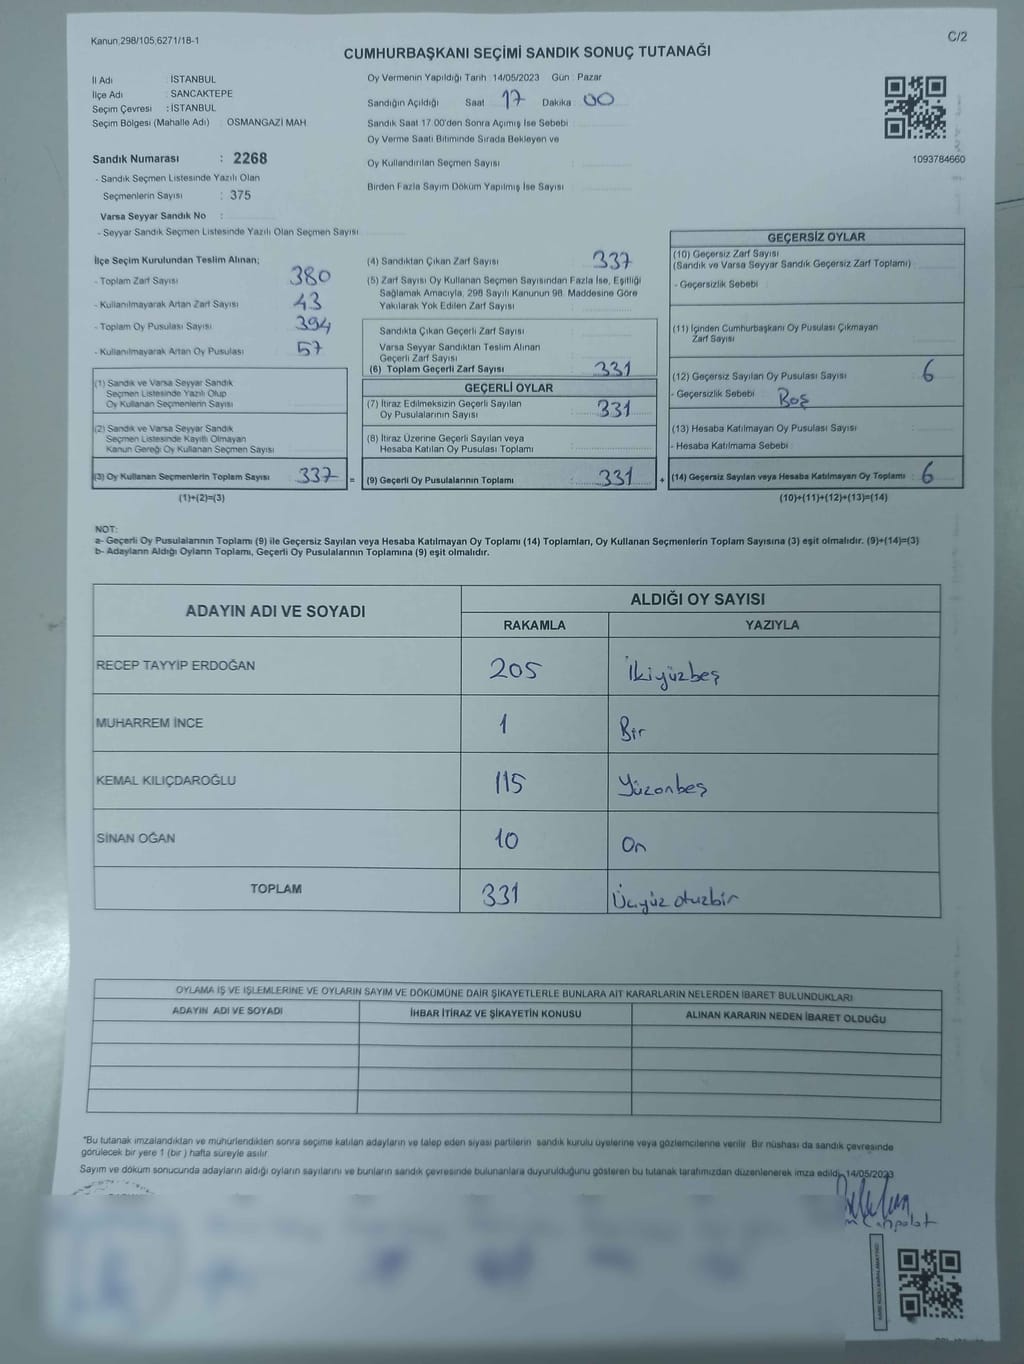 Kanun,298/105,6271/18-1
C/2
CUMHURBAŞKANI SEÇİMİ SANDIK SONUÇ TUTANAĞI
İl Adı : İSTANBUL
İlçe Adı : SANCAKTEPE
Seçim Çevresi : İSTANBUL
Seçim Bölgesi (Mahalle Adı) : OSMANGAZİ MAH
Oy Vermenin Yapıldığı Tarih 14/05/2023 Gün Pazar
Sandığın Açıldığı Saat 17 Dakika 00
Sandık Saat 17.00'den Sonra Açımış İse Sebebi :
Oy Verme Saati Bitiminde Sırada Bekleyen ve
Oy Kullandırılan Seçmen Sayısı :
Birden Fazla Sayım Döküm Yapılmış İse Sayısı :
1093784660
Sandık Numarası : 2268
- Sandık Seçmen Listesinde Yazılı Olan
Seçmenlerin Sayısı : 375
Varsa Seyyar Sandık No :
- Seyyar Sandık Seçmen Listesinde Yazılı Olan Seçmen Sayısı
İlçe Seçim Kurulundan Teslim Alınan;
- Toplam Zarf Sayısı 380
- Kullanılmayarak Artan Zarf Sayısı 43
- Toplam Oy Pusulası Sayısı 394
- Kullanılmayarak Artan Oy Pusulası 57
(1) Sandık ve Varsa Seyyar Sandık
Seçmen Listesinde Yazılı Olup
Oy Kullanan Seçmenlerin Sayısı
(2) Sandık ve Varsa Seyyar Sandık
Seçmen Listesinde Kayıtlı Olmayan
Kanun Gereği Oy Kullanan Seçmen Sayısı
(3) Oy Kullanan Seçmenlerin Toplam Sayısı 337 =
(1)+(2)=(3)
(4) Sandıktan Çıkan Zarf Sayısı : 337
(5) Zarf Sayısı Oy Kullanan Seçmen Sayısından Fazla İse, Eşitliği
Sağlamak Amacıyla, 298 Sayılı Kanunun 98. Maddesine Göre
Yakılarak Yok Edilen Zarf Sayısı :
Sandıkta Çıkan Geçerli Zarf Sayısı :
Varsa Seyyar Sandıktan Teslim Alınan
Geçerli Zarf Sayısı
(6) Toplam Geçerli Zarf Sayısı : 331
GEÇERLİ OYLAR
(7) İtiraz Edilmeksizin Geçerli Sayılan
Oy Pusulalarının Sayısı : 331
(8) İtiraz Üzerine Geçerli Sayılan veya
Hesaba Katılan Oy Pusulası Toplamı :
(9) Geçerli Oy Pusulalarının Toplamı : 331 +
GEÇERSİZ OYLAR
(10) Geçersiz Zarf Sayısı
(Sandık ve Varsa Seyyar Sandık Geçersiz Zarf Toplamı) :
- Geçersizlik Sebebi :
(11) İçinden Cumhurbaşkanı Oy Pusulası Çıkmayan
Zarf Sayısı :
(12) Geçersiz Sayılan Oy Pusulası Sayısı : 6
- Geçersizlik Sebebi : Boş
(13) Hesaba Katılmayan Oy Pusulası Sayısı :
- Hesaba Katılmama Sebebi :
(14) Geçersiz Sayılan veya Hesaba Katılmayan Oy Toplamı : 6
(10)+(11)+(12)+(13)=(14)
NOT:
a- Geçerli Oy Pusulalarının Toplamı (9) ile Geçersiz Sayılan veya Hesaba Katılmayan Oy Toplamı (14) Toplamları, Oy Kullanan Seçmenlerin Toplam Sayısına (3) eşit olmalıdır. (9)+(14)=(3)
b- Adayların Aldığı Oyların Toplamı, Geçerli Oy Pusulalarının Toplamına (9) eşit olmalıdır.
ADAYIN ADI VE SOYADI
ALDIĞI OY SAYISI
RAKAMLA YAZIYLA
RECEP TAYYİP ERDOĞAN 205 İkiyüzbeş
MUHARREM İNCE 1 Bir
KEMAL KILIÇDAROĞLU 115 Yüzonbeş
SİNAN OĞAN 10 On
TOPLAM 331 Üçyüz otuzbir
OYLAMA İŞ VE İŞLEMLERİNE VE OYLARIN SAYIM VE DÖKÜMÜNE DAİR ŞİKAYETLERLE BUNLARA AİT KARARLARIN NELERDEN İBARET BULUNDUKLARI
ADAYIN ADI VE SOYADI İHBAR İTİRAZ VE ŞİKAYETİN KONUSU ALINAN KARARIN NEDEN İBARET OLDUĞU
"Bu tutanak imzalandıktan ve mühürlendikten sonra seçime katılan adayların ve talep eden siyasi partilerin sandık kurulu üyelerine veya gözlemcilerine verilir. Bir nüshası da sandık çevresinde
görülecek bir yere 1 (bir ) hafta süreyle asılır
Sayım ve döküm sonucunda adayların aldığı oyların sayılarını ve bunların sandık çevresinde bulunanlara duyurulduğunu gösteren bu tutanak tarafımızdan düzenlenerek imza edildi. 14/05/2023